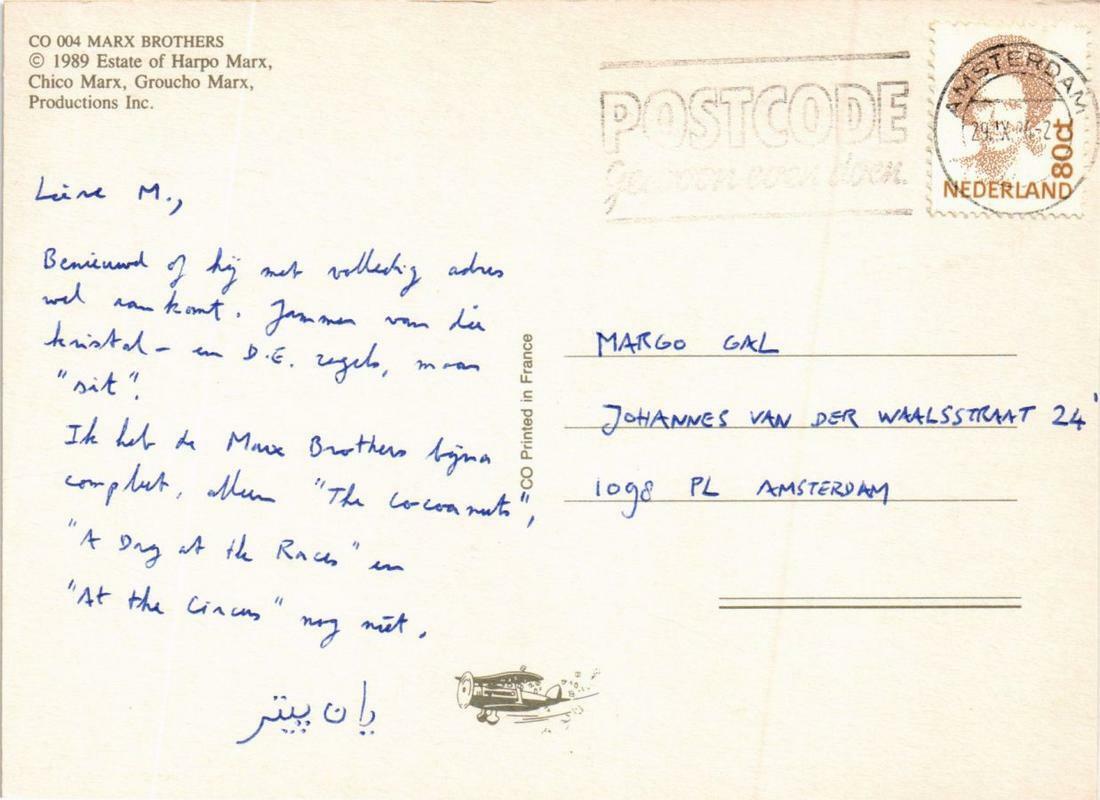 CO 004 MARX BROTHERS
© 1989 Estate of Harpo Marx,
Chico Marx, Groucho Marx,
Productions Inc.
POSTCODE
Gewoon even doen.
AMSTERDAM
80ct
NEDERLAND
Lieve M.,
Benieuwd of hij met volledig adres
wel aankomt. Jammer van die
kristal- en D.E. zegels, maar
"sit".
Ik heb de Marx Brothers bijna
compleet, alleen "The Cocoanuts",
"A Day at the Races" en
"At the Circus" nog niet.
یان پیتر
CO Printed in France
MARGO GAL
JOHANNES VAN DER WAALSSTRAAT 24'
1098 PL AMSTERDAM